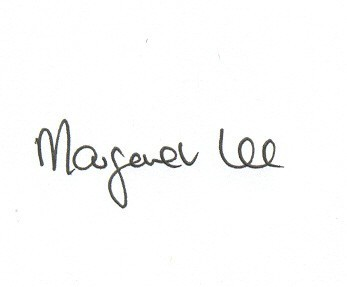 Margaret Lee